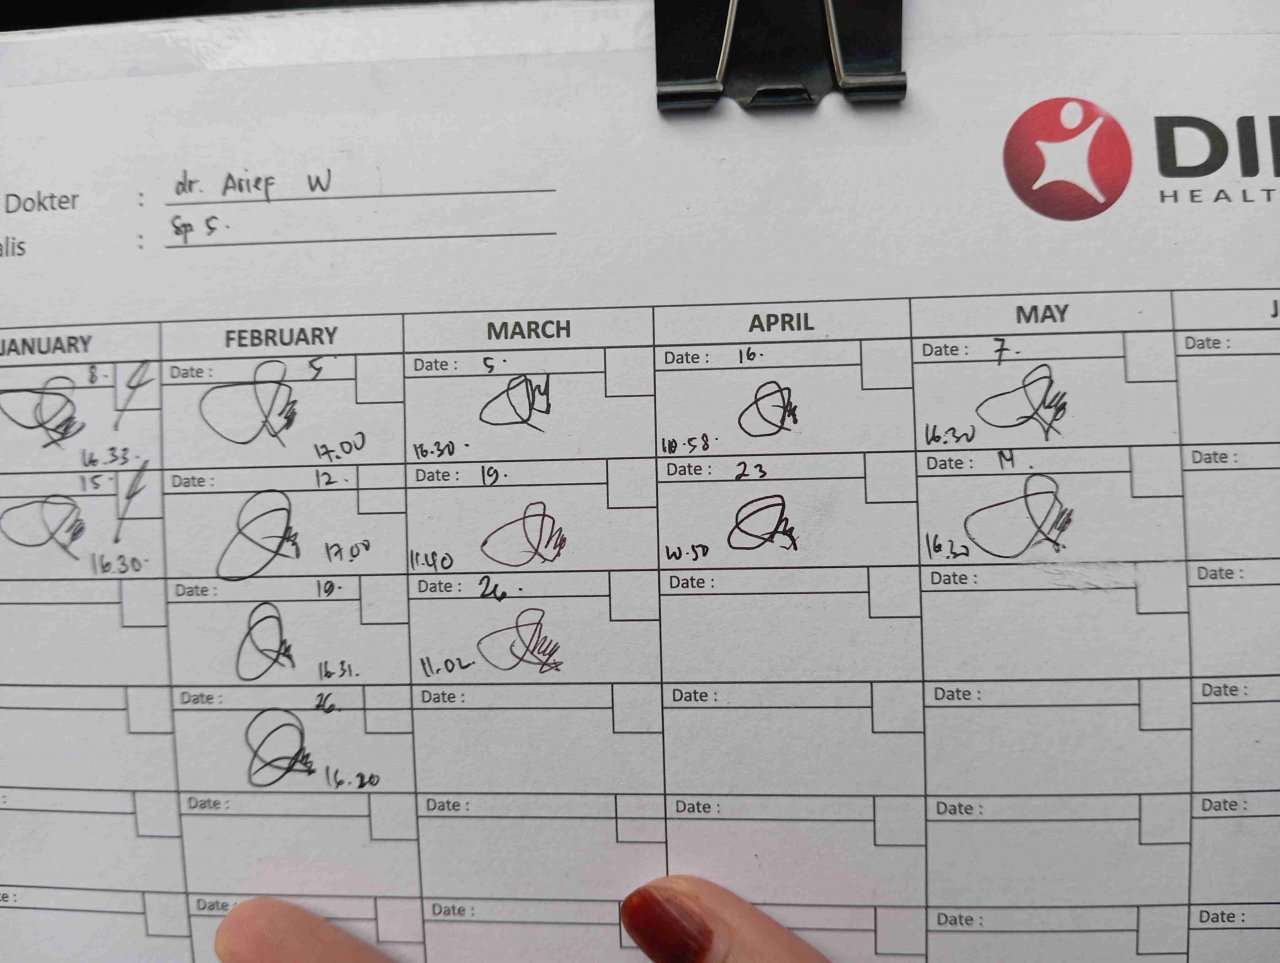 Dokter : dr. Arief W
alis : Sp S.
DI
HEALT
JANUARY FEBRUARY MARCH APRIL MAY J
8. Date : 5 Date : 5. Date : 16. Date : 7. Date :
16.33. 17.00 16.30. 16.30
15 Date : 12. Date : 19. Date : 23 Date : 14. Date :
16.30. 17.00 11.40 16.30
Date : 19. Date : 26. Date : Date : Date :
16.31. 11.02.
Date : 26. Date : Date : Date : Date :
16.20
: Date : Date : Date : Date : Date :
e : Date : Date : Date : Date :